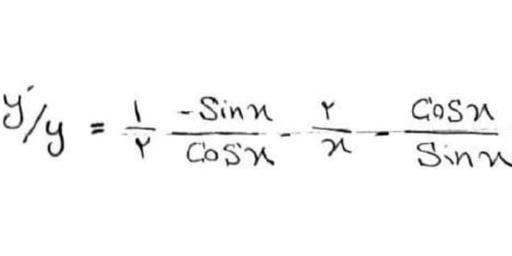 y'/y = ۱/۲ -Sinx/Cosx - ۲/x - Cosx/Sinx